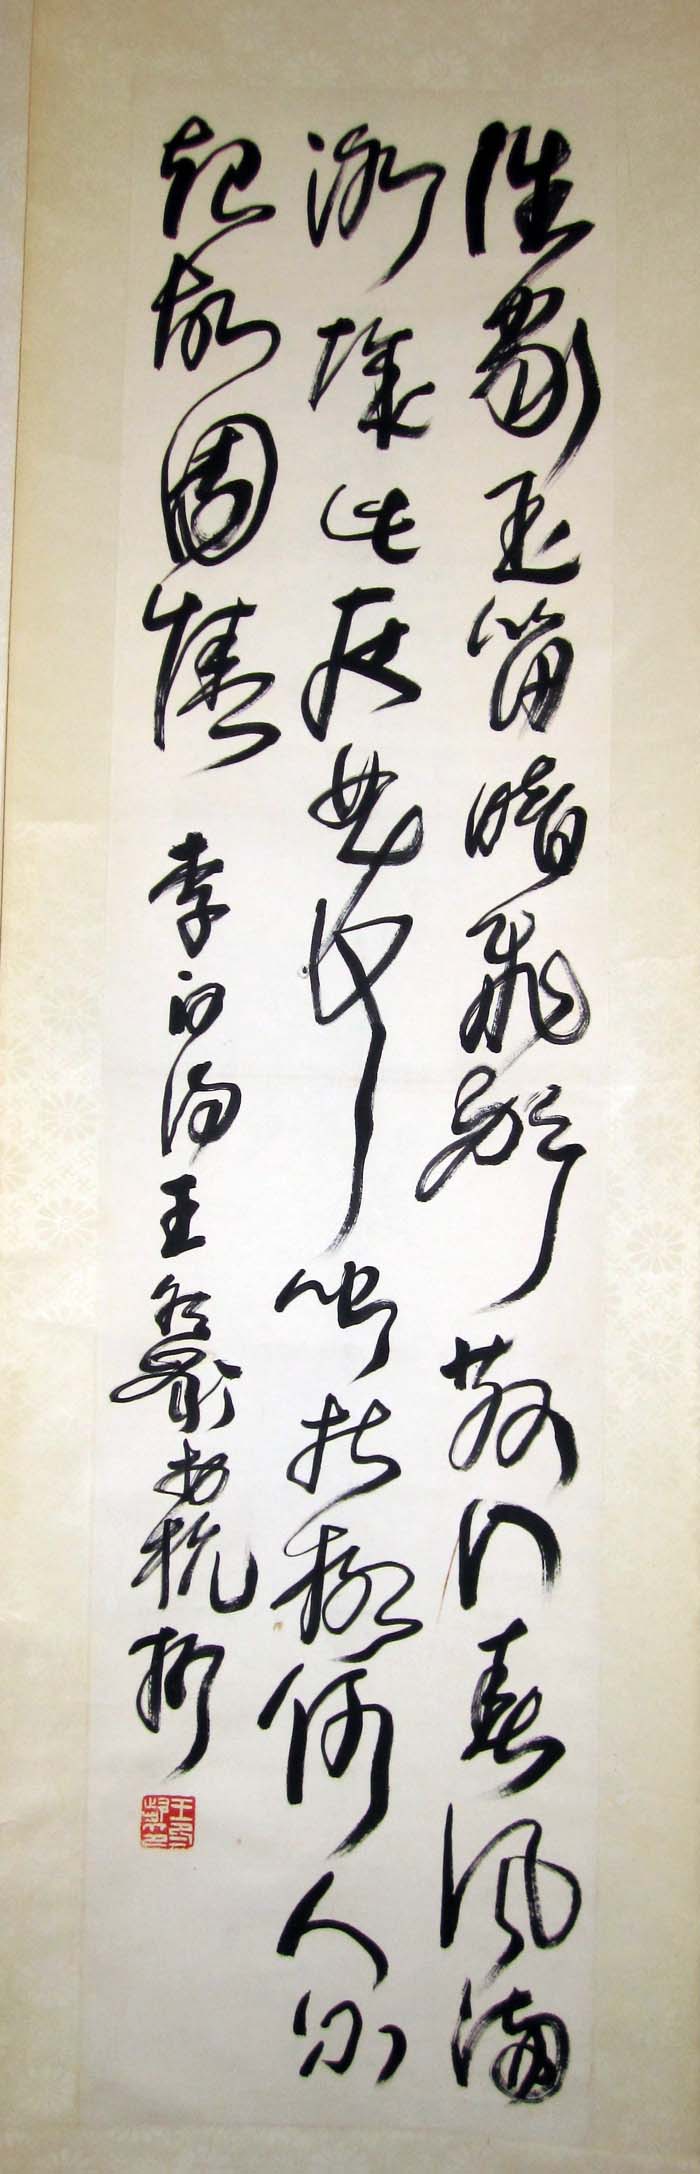 誰家玉笛暗飛聲散入春風滿
洛城此夜曲中聞折柳何人不
起故園情 李白詩 王冬齡